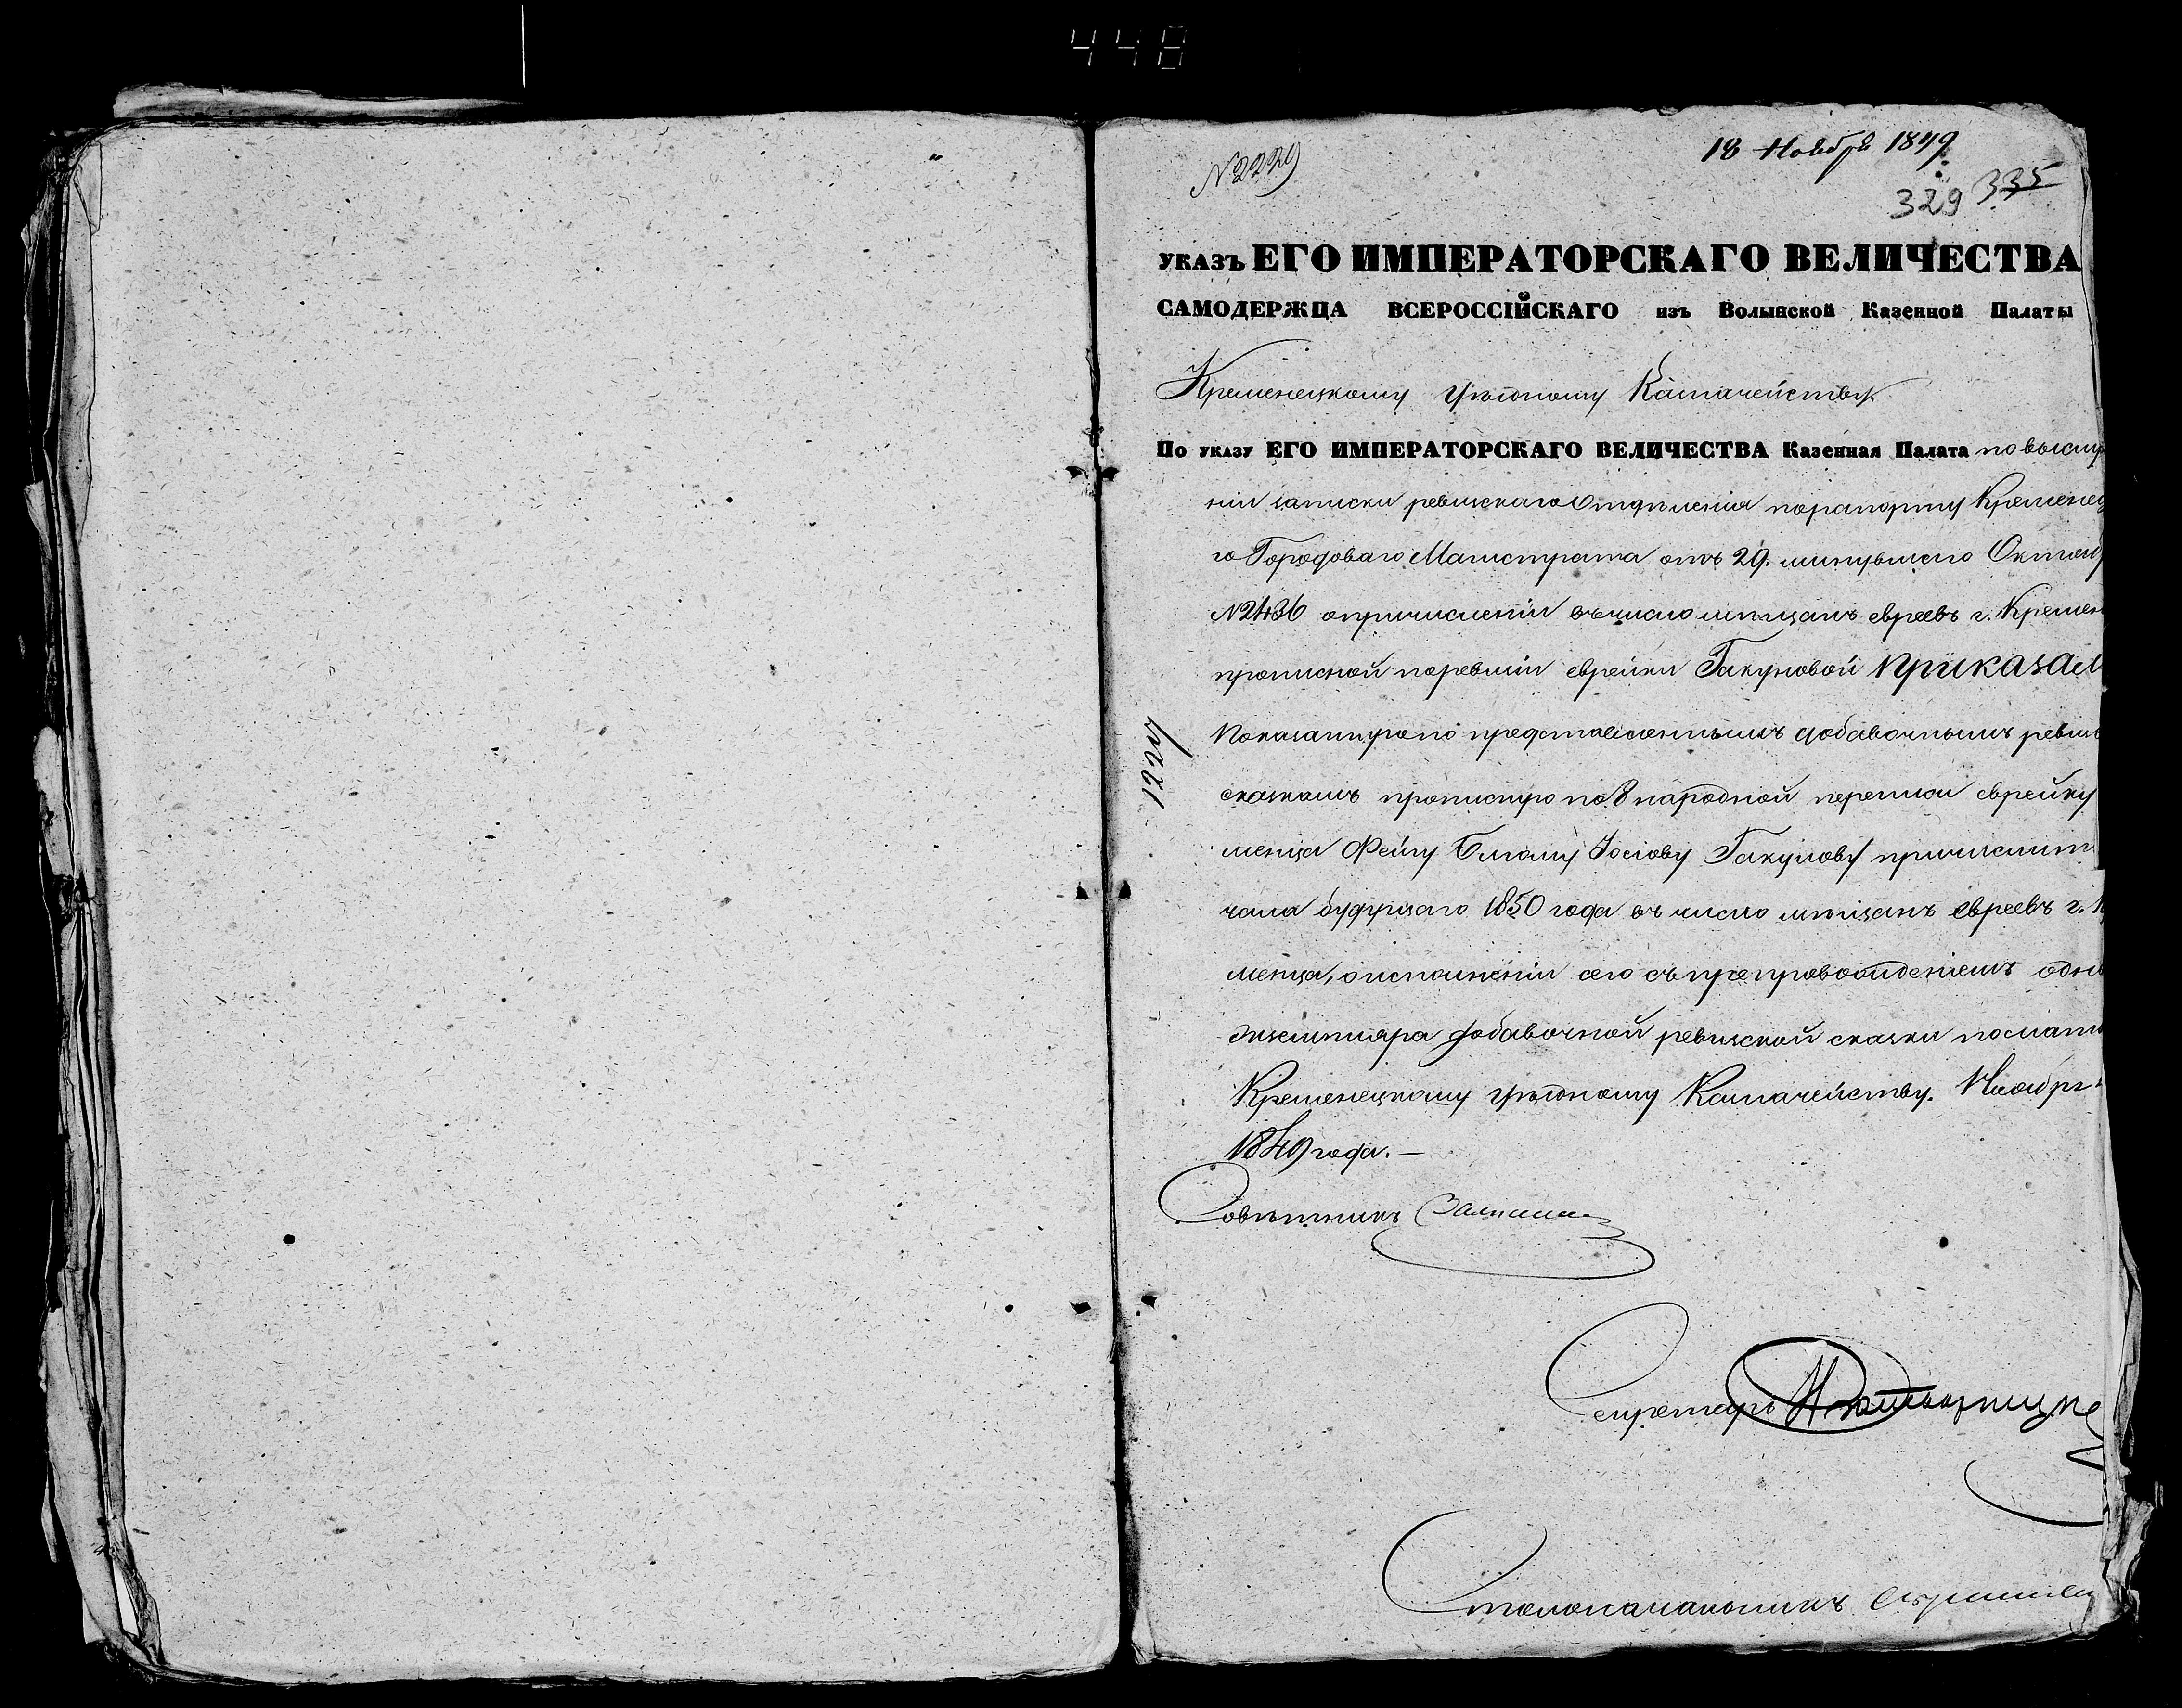 448
18 Ноября 1849
N 2229
329 335
УКАЗЪ ЕГО ИМПЕРАТОРСКАГО ВЕЛИЧЕСТВА
САМОДЕРЖЦА ВСЕРОССІЙСКАГО изъ Волынской Казенной Палаты
Кременецкому Уѣздному Казначейству.
По указу ЕГО ИМПЕРАТОРСКАГО ВЕЛИЧЕСТВА Казенная Палата по выслу
ніи записки ревизскаго Отдѣленія по рапорту Кременец
го Городоваго Магистрата отъ 29. минувшего Октяб
N 2436 о причисленіи въ число мѣщанъ евреевъ г. Кремен
прописной по ревизіи еврейки Гакуновой приказал
Показанную по представленнымъ добавочнымъ ревиз
сказкамъ прописную по 8 народной переписи еврейку
менца Фейгу Іосіову Гакунову причислит
чала будущаго 1850 года въ число мѣщанъ евреевъ г. К
менца, о исполненіи сего съ препровожденіемъ одно
экземпляра добавочной ревизской сказки послать
Кременецкому Уѣздному Казначейству. Ноябр
1849 года. —
12221
Совѣтникъ
Секретарь
Столоначальникъ